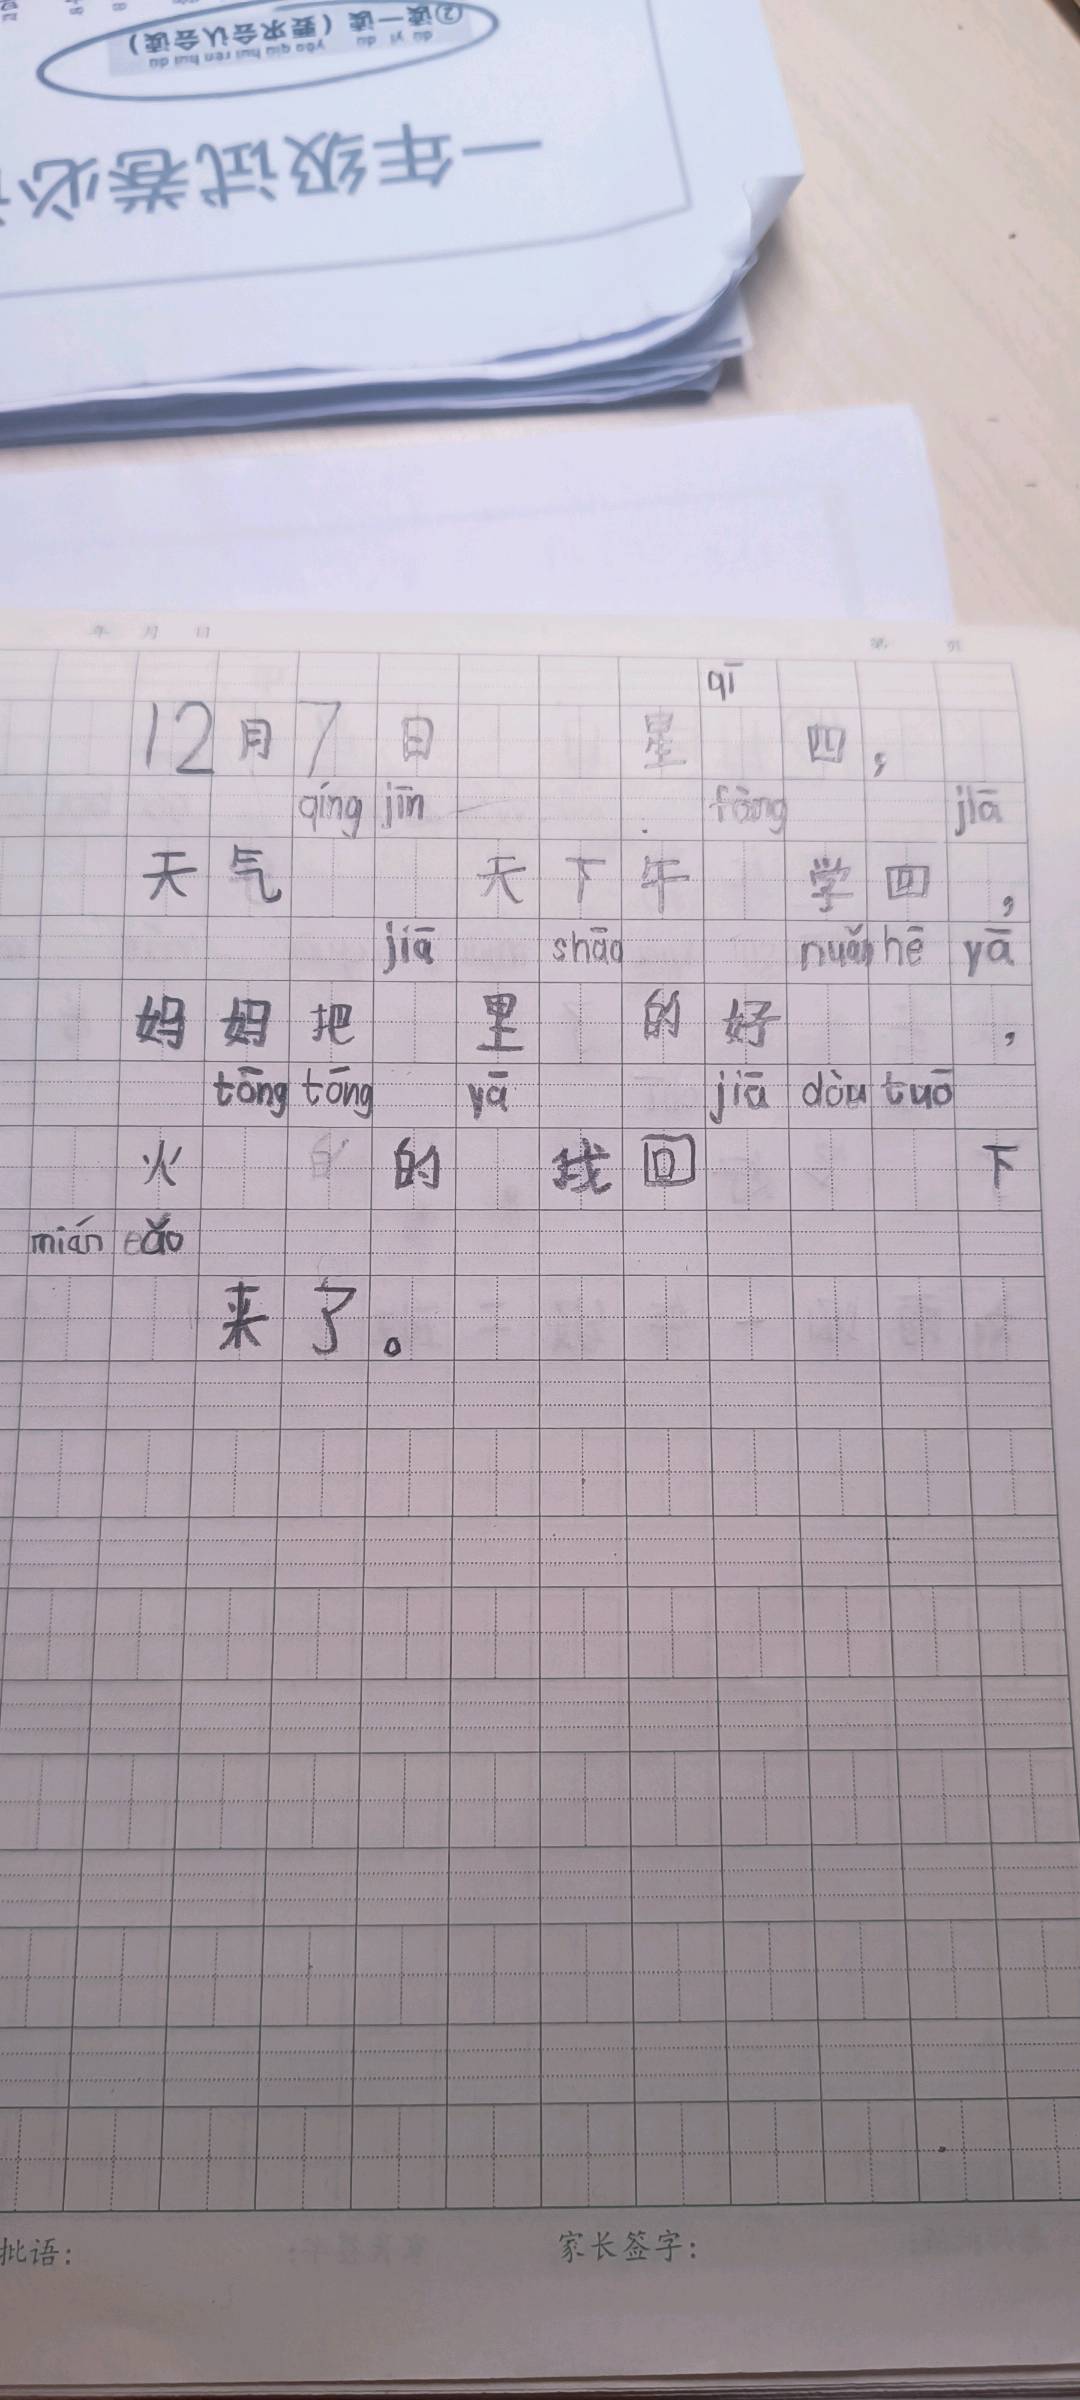 ②读一读（要求会认会读）
dú yì dú yāo qiú huì rèn huì dú
一年级试卷必
年 月 日 第 页
qī
12月7日 星 四，
qíng jīn fàng jiā
天气 天下午 学回，
jiā shāo nuǎn hē yā
妈妈把 里 的好 ，
tōng tōng yā jiā dòu tuō
火 的 找回 下
mián ǎo
来了。
批语： 家长签字：